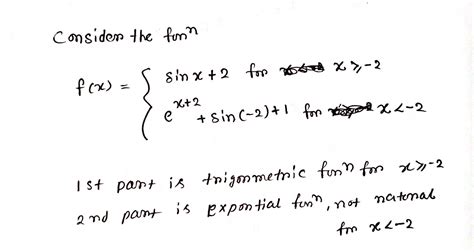 Consider the funⁿ
f(x) = { sin x + 2 for x ⩾ -2
e^{x+2} + sin(-2) + 1 for x < -2
1st part is trigonometric funⁿ for x ⩾ -2
2nd part is expontial funⁿ, not natural
for x < -2